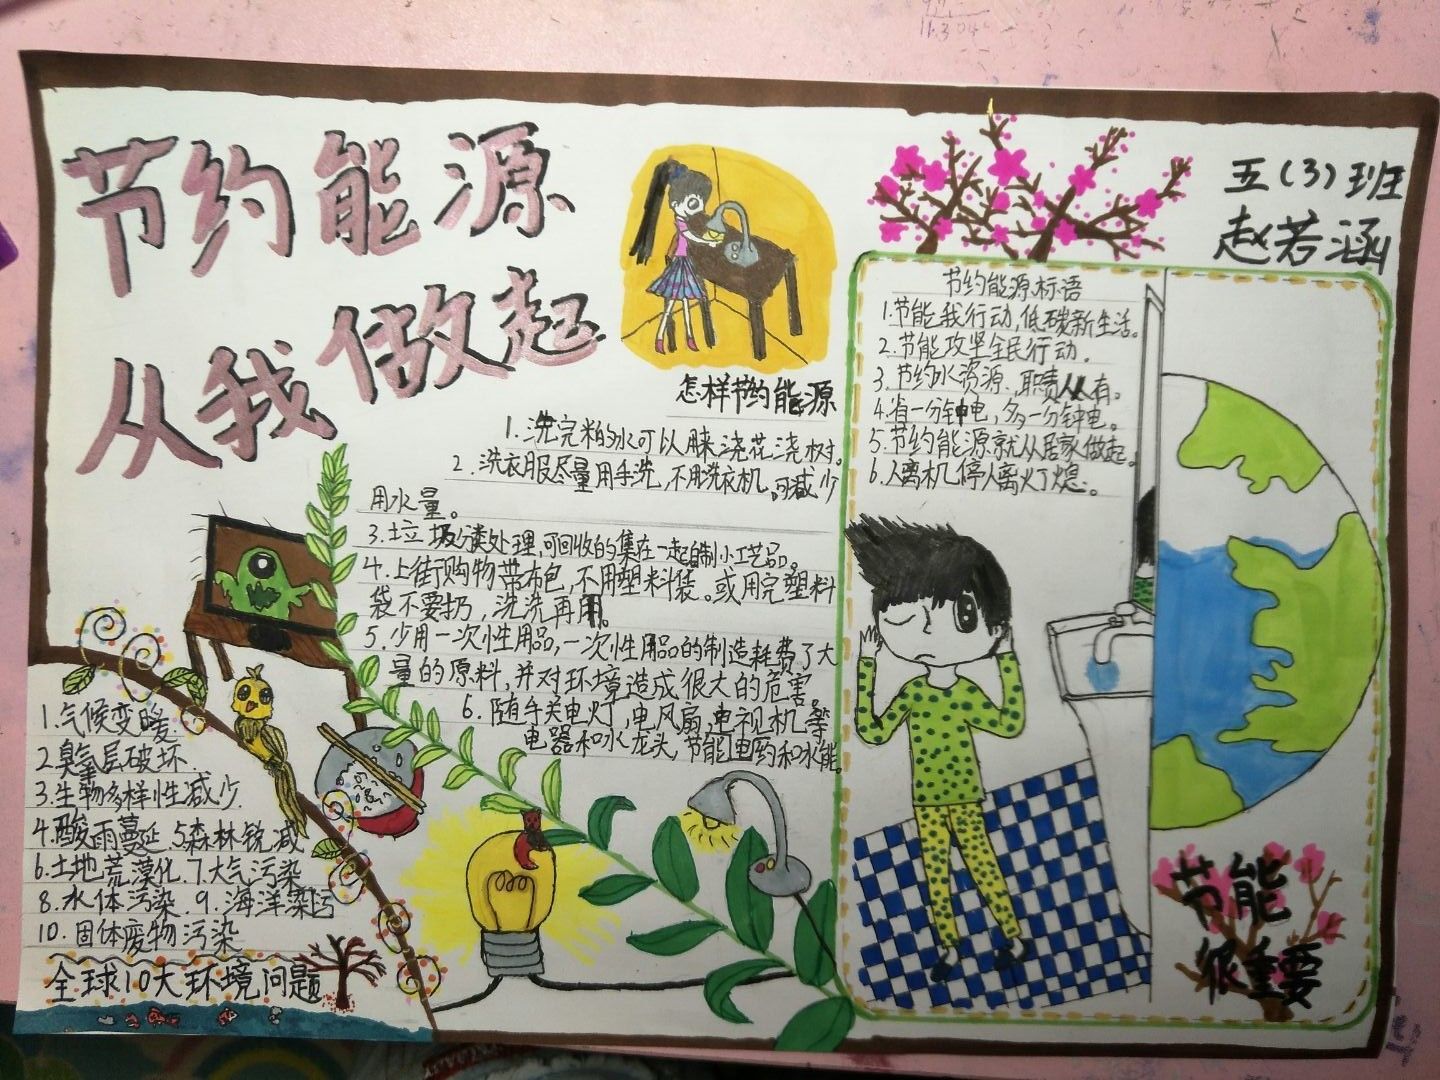 节约能源
从我做起
五(3)班
赵若涵
怎样节约能源
1.洗完米的水可以来浇花浇树。
2.洗衣服尽量用手洗,不用洗衣机,可减少
用水量。
3.垃圾分类处理,可回收的集在一起自制小工艺品。
4.上街购物带布包,不用塑料袋。或用完塑料
袋不要扔,洗洗再用。
5.少用一次性用品,一次性用品的制造耗费了大
量的原料,并对环境造成很大的危害
6.随手关电灯,电风扇,电视机等
电器和水龙头,节能电药和水能。
节约能源标语
1.节能我行动,低碳新生活。
2.节能攻坚全民行动.
3.节约水资源、职责人人有。
4.省一分钟电,多一分钟电。
5.节约能源就从居家做起。
6.人离机停人离灯熄。
1.气候变暖
2.臭氧层破坏
3.生物多样性减少.
4.酸雨蔓延.5森林锐减
6.土地荒漠化.7.大气污染
8.水体污染.9.海洋染污
10.固体废物污染
全球10大环境问题
节能
很重要